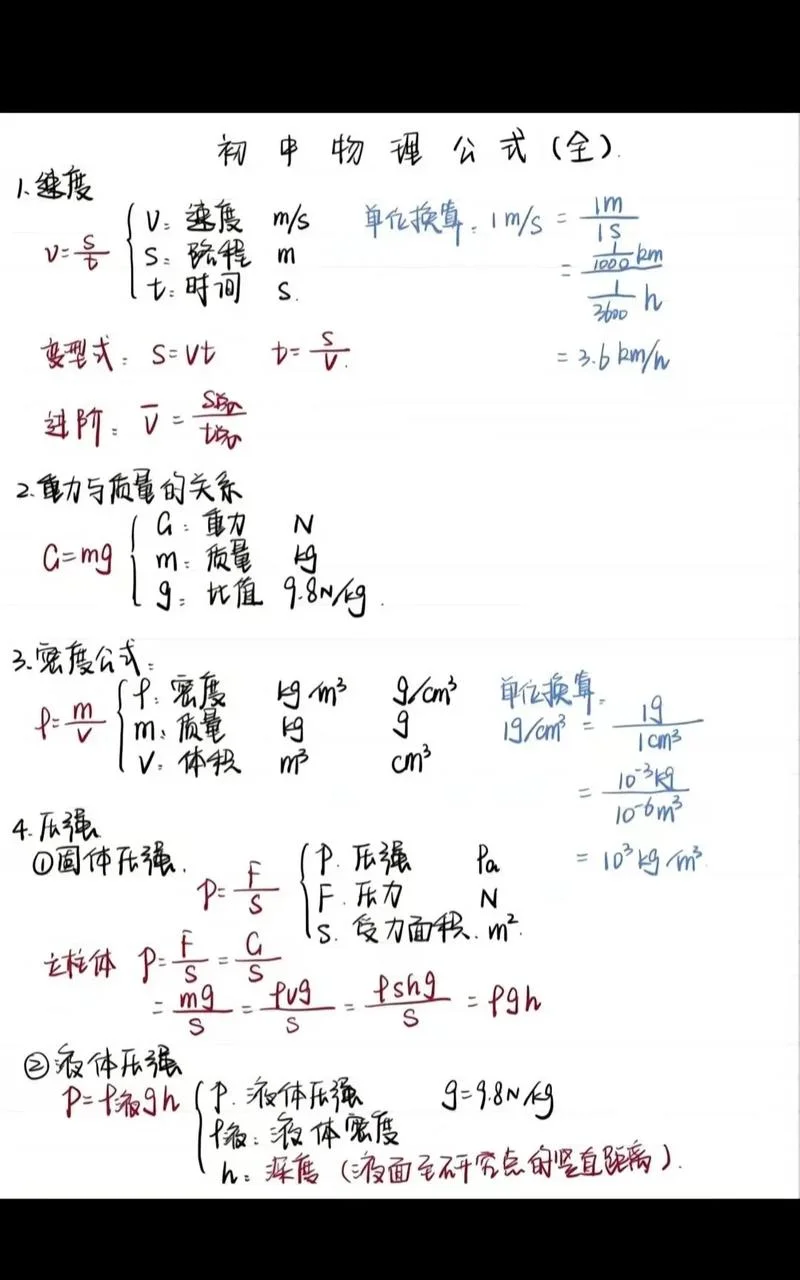 初中物理公式(全).
1.速度
v=s/t { V: 速度 m/s
S: 路程 m
t: 时间 s.
单位换算: 1m/s = 1m/1s
= (1/1000 km)/(1/3600 h)
= 3.6km/h
变型式: S=Vt t=s/v.
进阶: v̄ = S总/t总
2.重力与质量的关系
G=mg { G: 重力 N
m: 质量 kg
g: 比值 9.8N/kg.
3.密度公式:
ρ=m/v { ρ: 密度 kg/m³ g/cm³
m: 质量 kg g
V: 体积 m³ cm³
单位换算:
1g/cm³ = 1g/1cm³
= 10⁻³kg/10⁻⁶m³
= 10³kg/m³
4.压强
①固体压强.
P=F/S { P. 压强 Pa
F. 压力 N
S. 受力面积. m².
立柱体 P=F/S=G/S
=mg/S=ρvg/S=ρshg/S=ρgh
②液体压强
P=ρ液gh { P. 液体压强 g=9.8N/kg
ρ液: 液体密度
h: 深度 (液面至研究点的竖直距离).